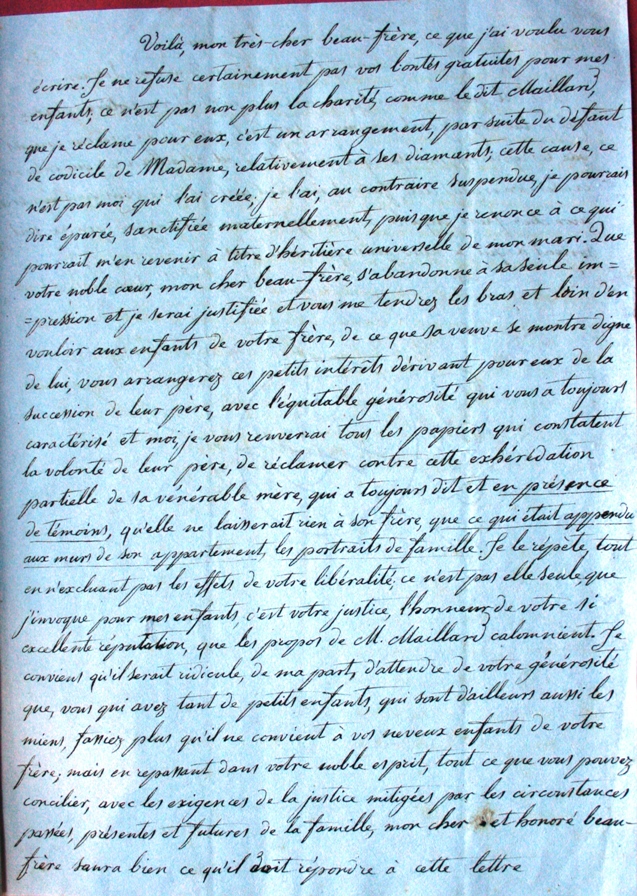 Voilà, mon très-cher beau-frère, ce que j'ai voulu vous
écrire. Je ne refuse certainement pas vos bontés gratuites pour mes
enfants, ce n'est pas non plus la charité, comme le dit Maillard,
que je réclame pour eux, c'est un arrangement, par suite du défaut
de codicile de Madame, relativement à ses diamants; cette cause, ce
n'est pas moi qui l'ai créée; je l'ai, au contraire suspendue, je pourrais
dire épurée, sanctifiée maternellement, puisque je renonce à ce qui
pourrait m'en revenir à titre d'héritière universelle de mon mari. Que
votre noble cœur, mon cher beau-frère, s'abandonne à sa seule im=
=pression et je serai justifiée et vous me tendrez les bras et loin d'en
vouloir aux enfants de votre frère, de ce que sa veuve se montre digne
de lui, vous arrangerez ces petits intérêts dérivant pour eux de la
succession de leur père, avec l'équitable générosité qui vous a toujours
caractérisé et moi, je vous renverrai tous les papiers qui constatent
la volonté de leur père, de réclamer contre cette exhérédation
partielle de sa vénérable mère, qui a toujours dit et en présence
de témoins, qu'elle ne laisserait rien à son frère, que ce qui était appendu
aux murs de son appartement, les portraits de famille. Je le répète, tout
en n'excluant pas les effets de votre libéralité: ce n'est pas elle seule que
j'invoque pour mes enfants c'est votre justice, l'honneur de votre si
excellente réputation, que les propos de M. Maillard calomnient. Je
conviens qu'il serait ridicule, de ma part, d'attendre de votre générosité
que, vous qui avez tant de petits enfants, qui sont d'ailleurs aussi les
miens, fassiez plus qu'il ne convient à vos neveux enfants de votre
frère; mais en repassant dans votre noble esprit, tout ce que vous pouvez
concilier, avec les exigences de la justice mitigées par les circonstances
passées, présentes et futures de la famille, mon cher et honoré beau-
frère saura bien ce qu'il doit répondre à cette lettre